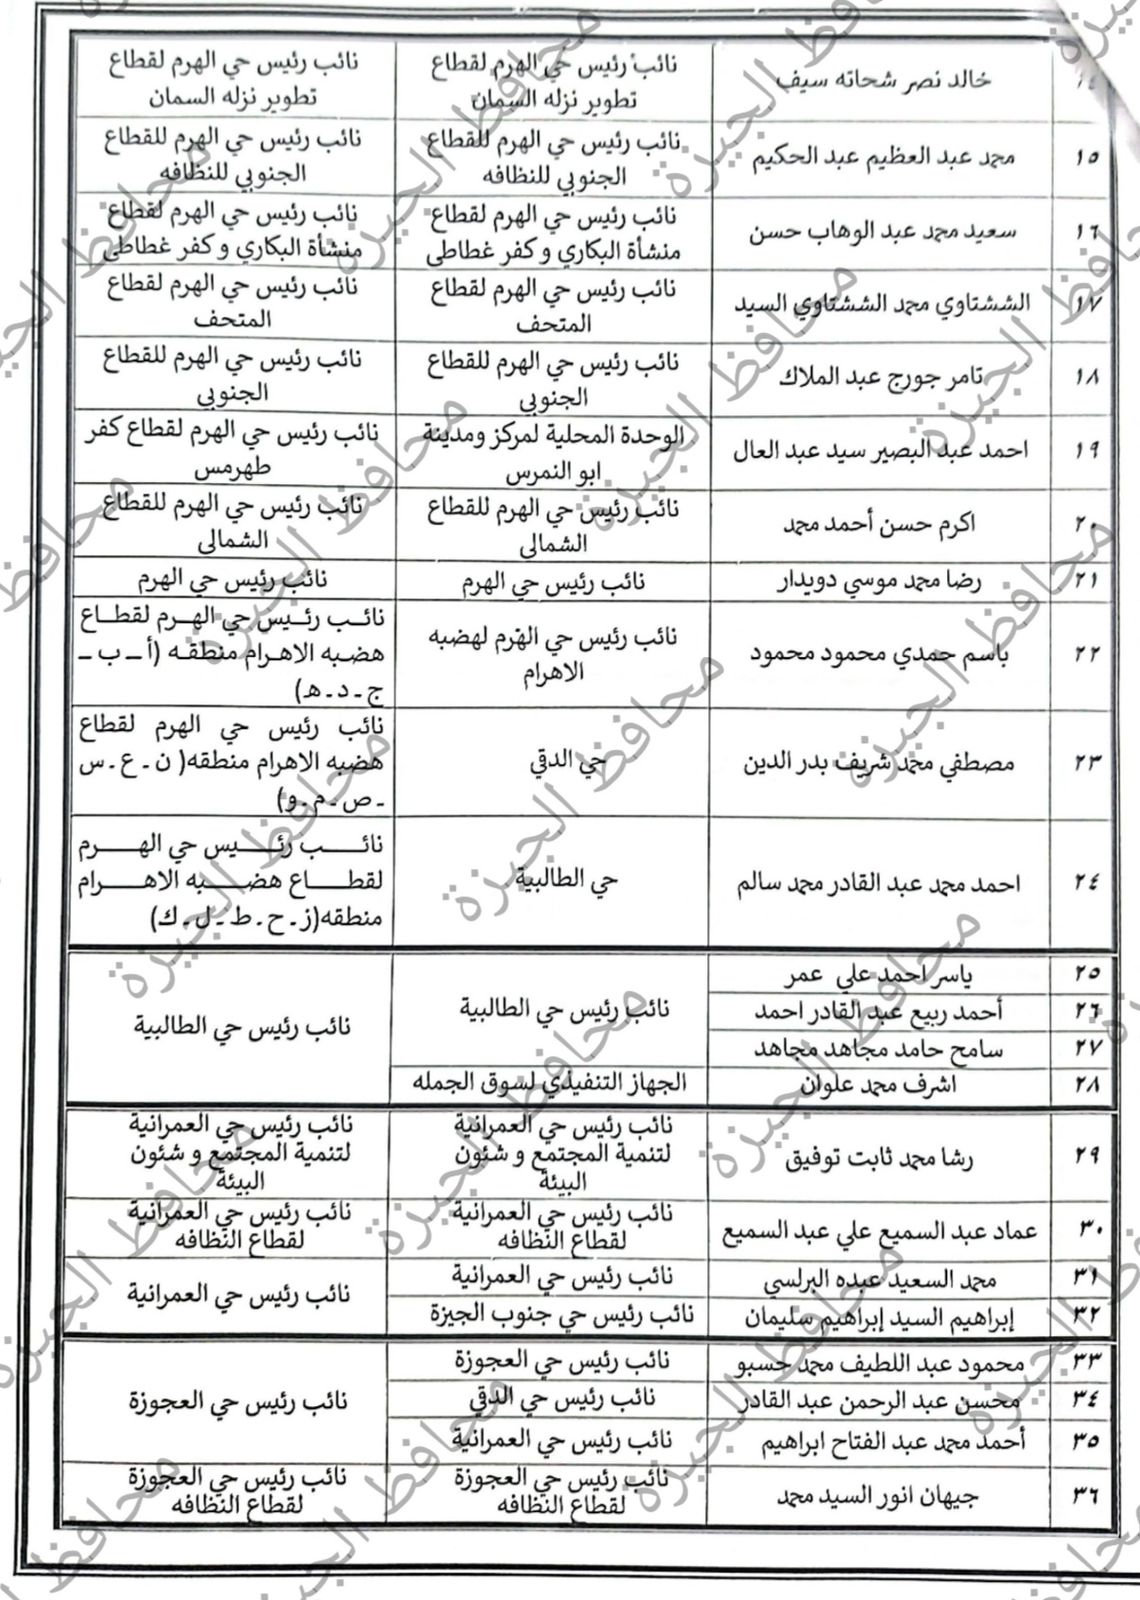 ١٤ خالد نصر شحاته سيف نائب رئيس حي الهرم لقطاع نائب رئيس حي الهرم لقطاع
تطوير نزله السمان تطوير نزله السمان
١٥ محمد عبد العظيم عبد الحكيم نائب رئيس حي الهرم للقطاع نائب رئيس حي الهرم للقطاع
الجنوبي للنظافه الجنوبي للنظافه
١٦ سعيد محمد عبد الوهاب حسن نائب رئيس حي الهرم لقطاع نائب رئيس حي الهرم لقطاع
منشأة البكاري و كفر غطاطى منشأة البكاري و كفر غطاطى
١٧ الششتاوي محمد الششتاوي السيد نائب رئيس حي الهرم لقطاع نائب رئيس حي الهرم لقطاع
المتحف المتحف
١٨ تامر جورج عبد الملاك نائب رئيس حي الهرم للقطاع نائب رئيس حي الهرم للقطاع
الجنوبي الجنوبي
١٩ احمد عبد البصير سيد عبد العال الوحدة المحلية لمركز ومدينة نائب رئيس حي الهرم لقطاع كفر
ابو النمرس طهرمس
٢٠ اكرم حسن أحمد محمد نائب رئيس حي الهرم للقطاع نائب رئيس حي الهرم للقطاع
الشمالى الشمالى
٢١ رضا محمد موسي دويدار نائب رئيس حي الهرم نائب رئيس حي الهرم
٢٢ باسم حمدي محمود محمود نائب رئيس حي الهرم لهضبه نائب رئيس حي الهرم لقطاع
الاهرام هضبه الاهرام منطقه (أ – ب –
ج - د - ه)
٢٣ مصطفي محمد شريف بدر الدين حي الدقي نائب رئيس حي الهرم لقطاع
هضبه الاهرام منطقه( ن - ع - س
- ص - م - و)
٢٤ احمد محمد عبد القادر محمد سالم حي الطالبية نائب رئيس حي الهرم
لقطاع هضبه الاهرام
منطقه(ز - ح - ط - ل - ك)
٢٥ ياسر احمد علي عمر نائب رئيس حي الطالبية نائب رئيس حي الطالبية
٢٦ أحمد ربيع عبد القادر احمد
٢٧ سامح حامد مجاهد مجاهد
٢٨ اشرف محمد علوان الجهاز التنفيذي لسوق الجمله
٢٩ رشا محمد ثابت توفيق نائب رئيس حي العمرانية نائب رئيس حي العمرانية
لتنمية المجتمع و شئون لتنمية المجتمع و شئون
البيئة البيئة
٣٠ عماد عبد السميع علي عبد السميع نائب رئيس حي العمرانية نائب رئيس حي العمرانية
لقطاع النظافه لقطاع النظافه
٣١ محمد السعيد عبده البرلسي نائب رئيس حي العمرانية نائب رئيس حي العمرانية
٣٢ إبراهيم السيد إبراهيم سليمان نائب رئيس حي جنوب الجيزة
٣٣ محمود عبد اللطيف محمد حسبو نائب رئيس حي العجوزة نائب رئيس حي العجوزة
٣٤ محسن عبد الرحمن عبد القادر نائب رئيس حي الدقي
٣٥ أحمد محمد عبد الفتاح ابراهيم نائب رئيس حي العمرانية
٣٦ جيهان انور السيد محمد نائب رئيس حي العجوزة نائب رئيس حي العجوزة
لقطاع النظافه لقطاع النظافه
محافظ الجيزة